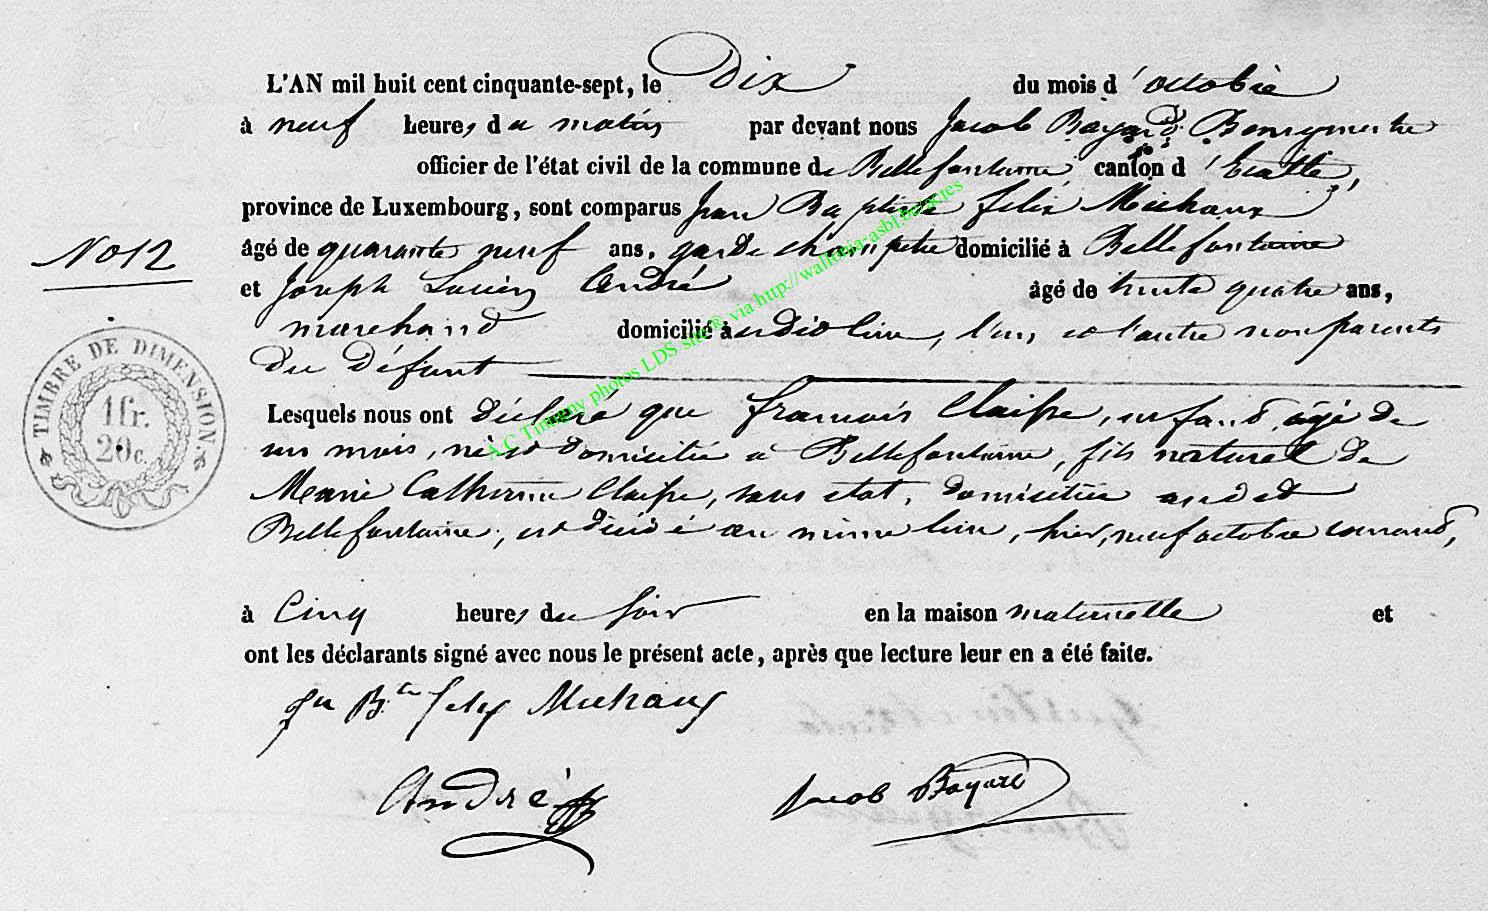 L'AN mil huit cent cinquante-sept, le Dix du mois d'octobre
à neuf heures du matin par devant nous Jacob Bayard, Bourgmestre
officier de l'état civil de la commune de Bellefontaine, canton d'Etalle,
province de Luxembourg, sont comparus Jean Baptiste felix Michaux
âgé de quarante neuf ans, garde champetre domicilié à Bellefontaine
N° 12
et Joseph Lucien André âgé de trente quatre ans,
marchand domicilié à udit lieu, l'un et l'autre non parents
du défunt
TIMBRE DE DIMENSION
1 fr.
20 c.
Lesquels nous ont déclaré que francois Claisse, enfant, âgé de
un mois, né et domicilié à Bellefontaine, fils naturel de
Marie Catherine Claisse, sans etat, domiciliée audit
Bellefontaine, est décédé au même lieu, hier, neuf octobre courant,
à Cinq heures du soir en la maison maternelle et
ont les déclarants signé avec nous le présent acte, après que lecture leur en a été faite.
Jn B.te felix Michaux
André
Jacob Bayard
A.C Tintigny photos LDS site®, via http://wallonia-asbl.be/actes